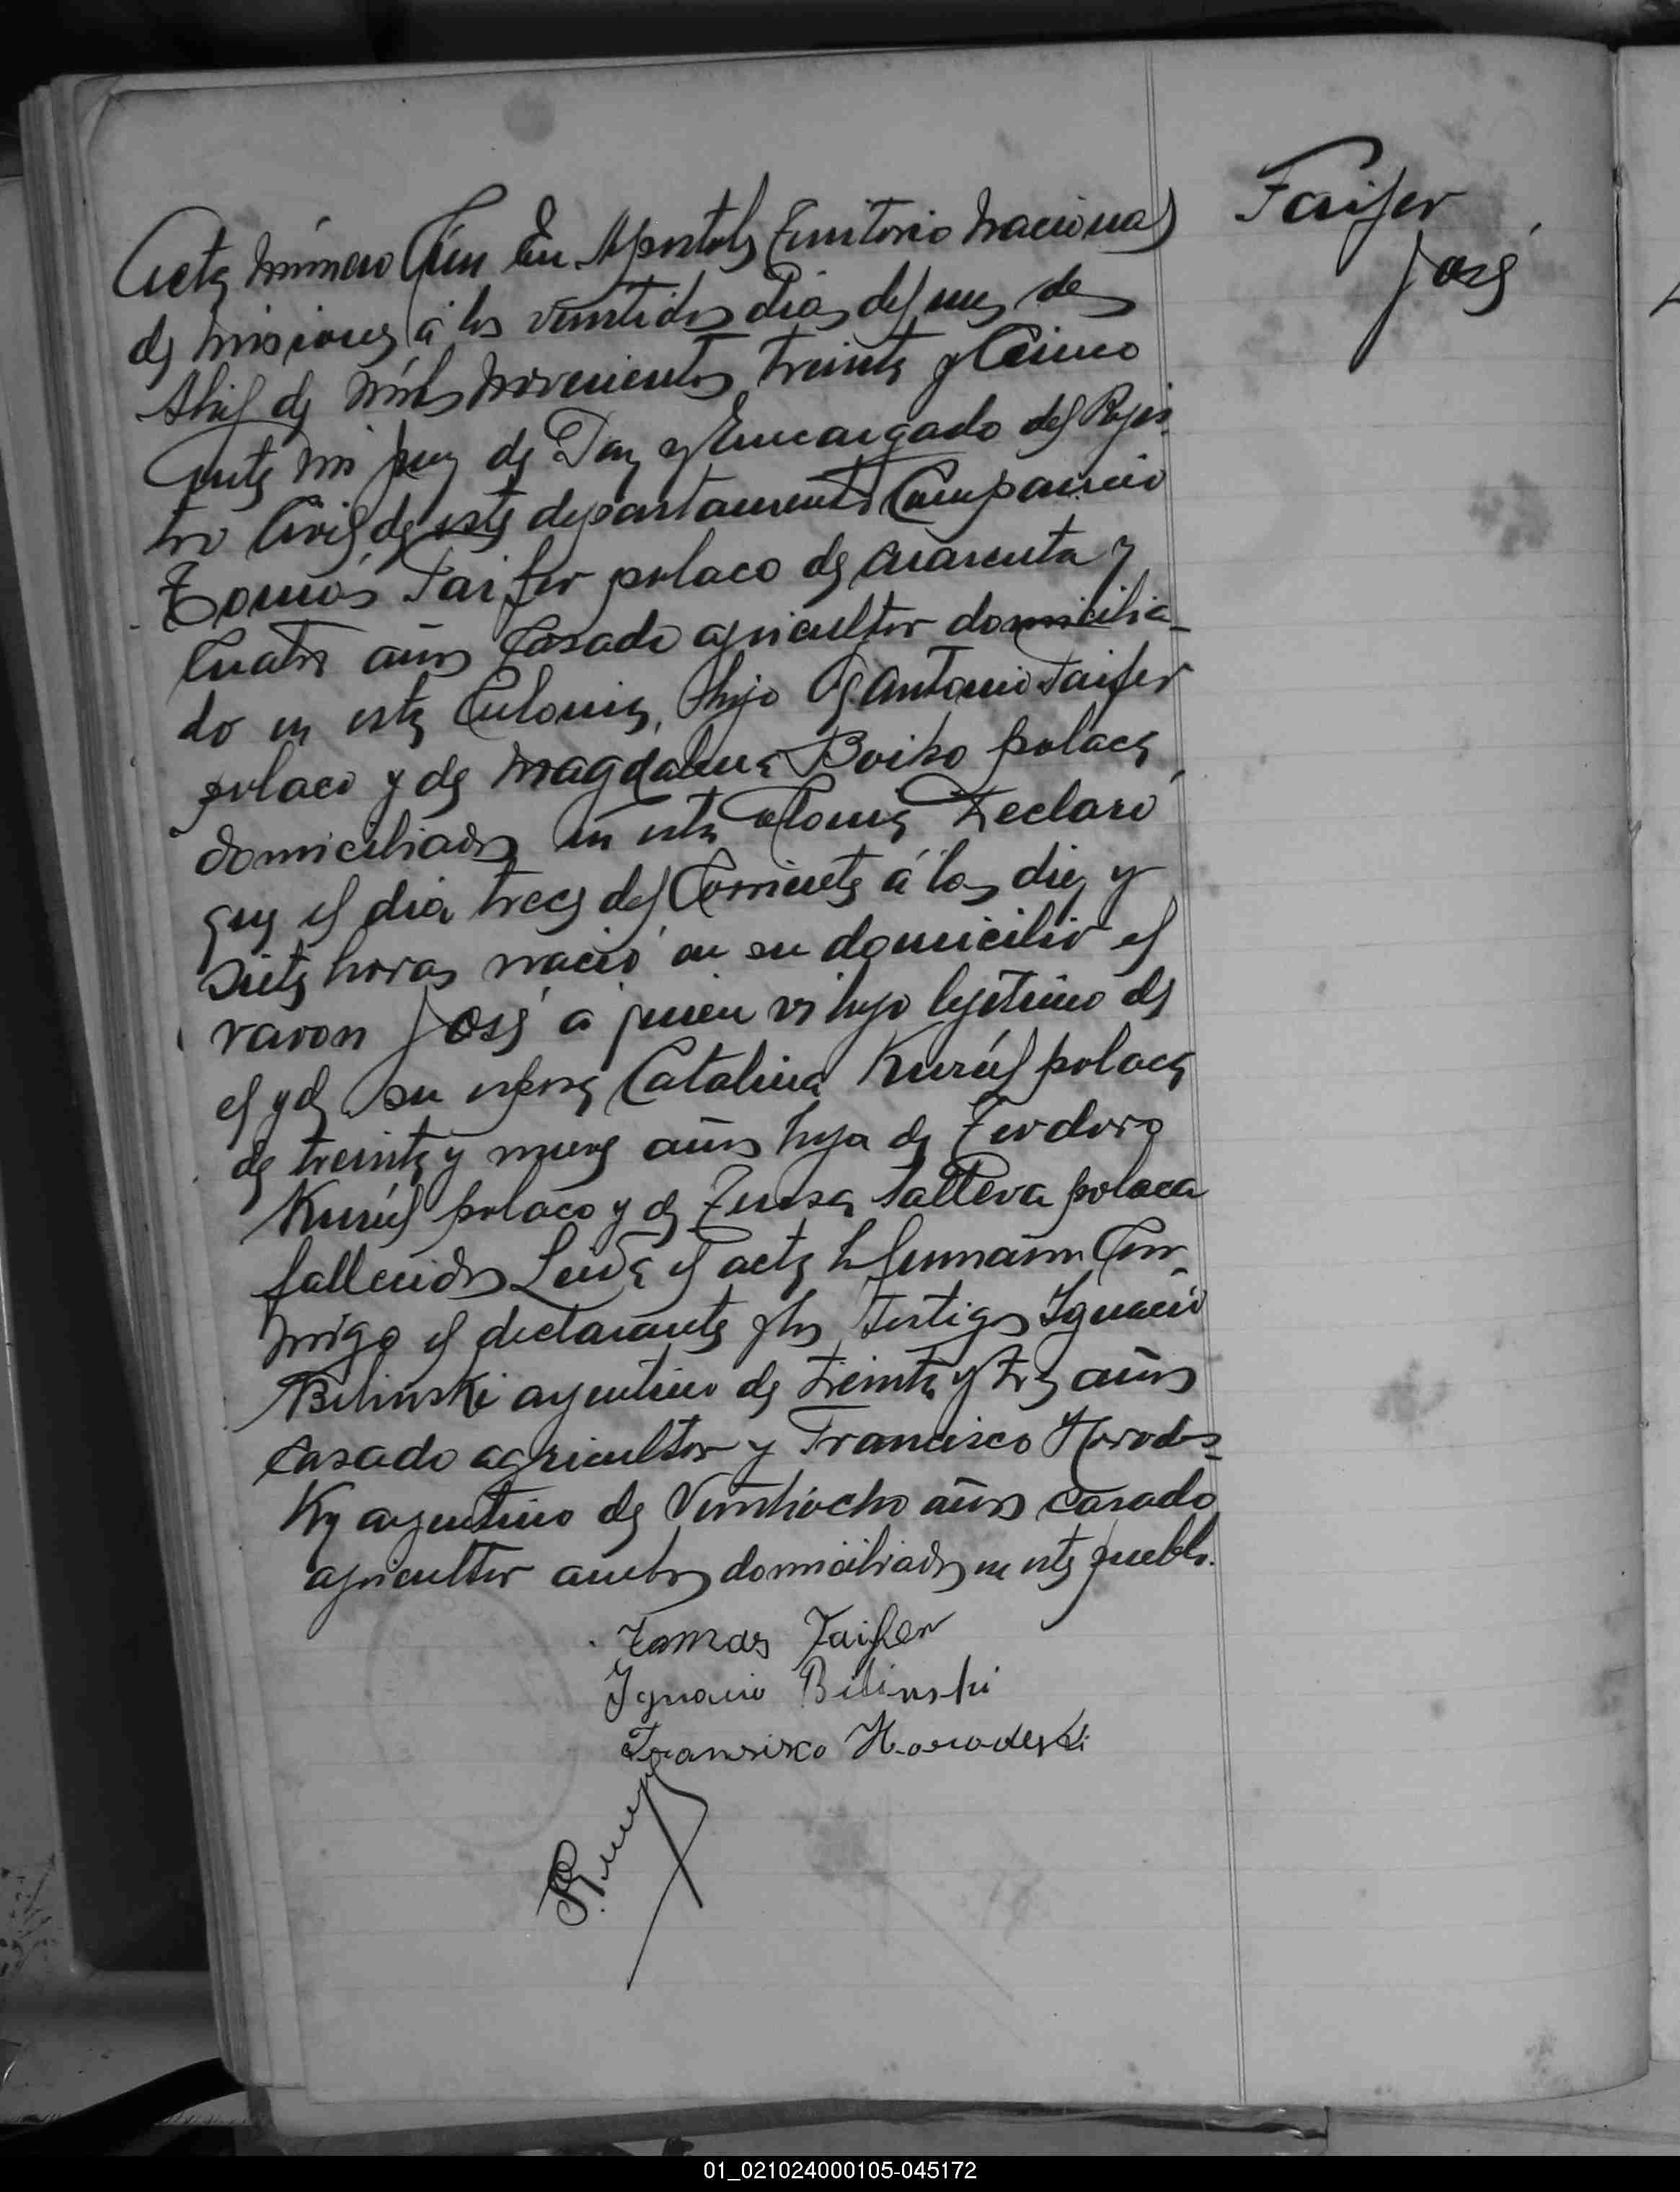 Faifer
José
Acta número Cien En Apóstoles Territorio Nacional
de Misiones á los veintidos dias del mes de
Abril de mil novecientos treinta y Cinco
ante mi Juez de Paz y Encargado del Regis
tro Civil de este departamento Compareció
Tomás Faifer polaco de cuarenta y
Cuatro años Casado agricultor domicilia-
do en esta Colonia, hijo de Antonio Faifer
polaco y de Magdalena Boiko polaca
domiciliados en esta colonia Declaró
que el dia trece del Corriente á las diez y
siete horas nació en su domicilio el
varon José á quien vi hijo lejitimo de
el y de su esposa Catalina Kurúl polaca
de treinta y nueve años hija de Teodoro
Kurúl polaco y de Teresa polaca
fallecidos Leida el acta la firmaron Con-
migo el declarante y los testigos Ignacio
Bilinski argentino de treinta y tres años
Casado agricultor y Francisco Horodes-
Ky argentino de Veintiocho años casado
agricultor ambos domiciliados en este pueblo.
Tomas Faifer
Ignacio Bilinski
Fransisco Horodeski
01_021024000105-045172